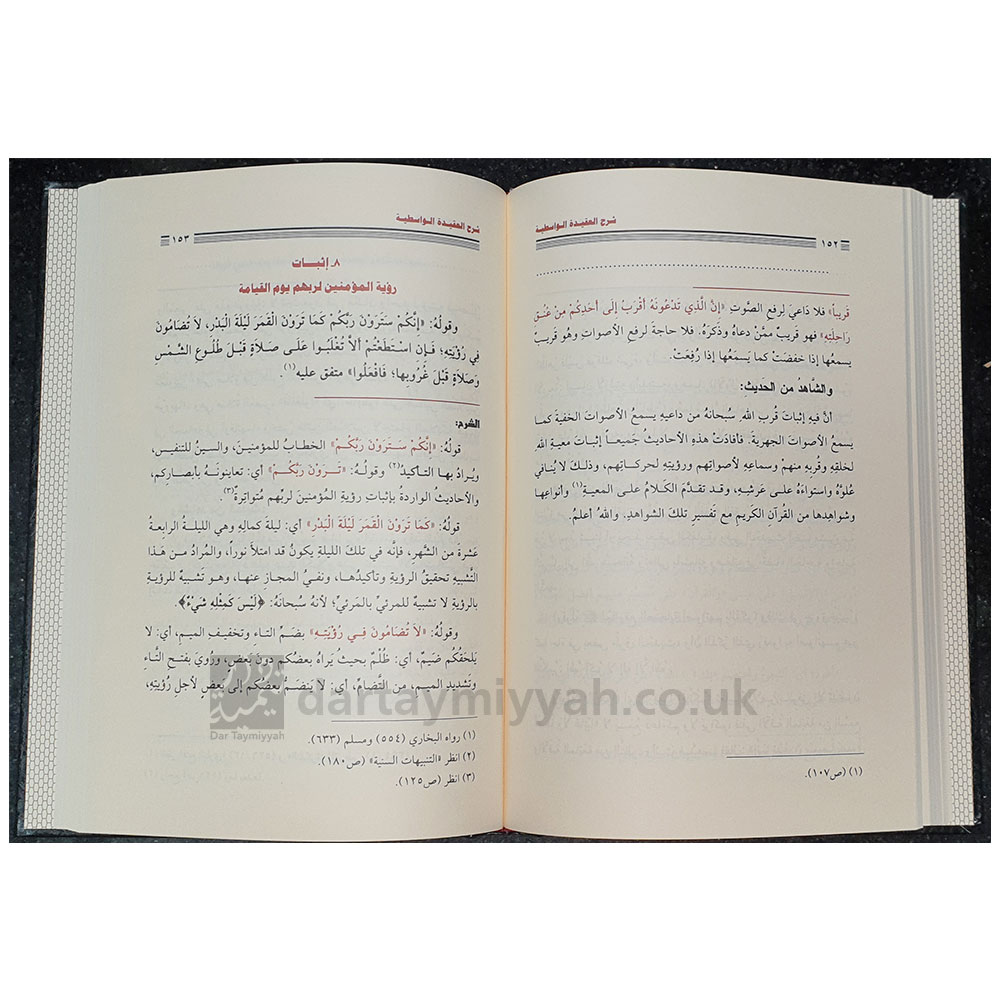 شرح العقيدة الواسطية
١٥٢
قريباً» فلا داعيَ لرفعِ الصَّوتِ «إنَّ الَّذِي تَدْعُونَهُ أَقْرَبُ إلى أَحَدِكُمْ مِنْ عُنُقِ
رَاحلَتِهِ» فهو قريبٌ ممَّن دعاهُ وذكرَهُ. فلا حاجةَ لرفعِ الأصواتِ وهُو قريبٌ
يسمعُها إذا خفضَتْ كما يَسمَعُها إذا رُفِعَتْ.
والشَّاهدُ من الحَديثِ:
أنَّ فيهِ إثباتَ قُربِ اللهِ سُبحانهُ من داعيهِ يسمعُ الأصواتَ الخفيةَ كما
يسمعُ الأصواتَ الجهريةَ. فأفادَتْ هذهِ الأحاديثُ جَميعاً إثباتَ معيةِ اللهِ
لخلقِهِ وقُربِهِ منهُم وسماعِهِ لأصواتِهم ورؤيتِهِ لحركاتِهم، وذلكَ لا يُنافي
عُلوَّهُ واستواءَهُ على عَرشِهِ، وقد تقدَّمَ الكَلامُ على المعيةِ(١) وأنواعِها
وشواهِدها من القُرآنِ الكَريمِ مع تَفسيرِ تِلكَ الشواهدِ. واللهُ أعلمُ.
(١) (ص١٠٧).
شرح العقيدة الواسطية
١٥٣
٨ـ إثبـات
رؤية المؤمنين لربهم يوم القيامة
وقولُهُ: «إنَّكُمْ سَتَرَوْنَ رَبَّكُمْ كَمَا تَرَوْنَ القَمَرَ لَيْلَةَ الْبَدْرِ، لَا تُضَامُونَ
فِي رُؤْيَتِهِ؛ فَإِن اسْتَطَعْتُمْ أَلاَّ تُغْلَبُوا عَلَى صَلَاةٍ قَبْلَ طُلُوعِ الشَّمْسِ
وَصَلَاةٍ قَبْلَ غُرُوبِها؛ فَافْعَلُوا» متفق عليه(١).
الشرح:
قولُهُ: «إنَّكُمْ سَتَرَوْنَ رَبَّكُمْ» الخطابُ للمؤمنينَ، والسينُ للتنفيسِ،
ويُرادُ بها التأكيدُ(٢) وقولُهُ: «تَرَوْنَ رَبَّكُمْ» أي: تعاينونَهُ بأبصارِكم،
والأحاديثُ الواردةُ بإثباتِ رؤيةِ المؤمنينَ لربِّهم مُتواتِرةٌ(٣).
قولُهُ: «كَمَا تَرَوْنَ القَمَرَ لَيْلَةَ الْبَدْرِ» أي: ليلةَ كمالِهِ وهي الليلةُ الرابعةَ
عَشرةَ من الشَّهرِ، فإنَّه في تلكَ الليلةِ يكونُ قد امتلأَ نوراً، والمُرادُ من هَذا
التَّشبيهِ تحقيقُ الرؤيةِ وتأكيدُها، ونفيُ المجازِ عنها، وهو تَشبيهٌ للرؤيةِ
بالرؤيةِ لا تشبيهٌ للمرئيِّ بالمَرئيِّ؛ لأنهُ سبحانَهُ: ﴿لَيْسَ كَمِثْلِهِ شَيْءٌ﴾.
وقولُهُ: «لَا تُضَامُونَ فِي رُؤْيَتِهِ» بضَمِّ التاء وتخفيفِ الميمِ، أي: لا
يَلحَقُكُم ضَيمٌ، أي: ظُلْمٌ بحيثُ يَراهُ بعضُكُم دونَ بَعضٍ، ورُويَ بفتحِ التَّاءِ
وتَشديدِ الميمِ، من التَّضامِّ، أي: لا يَنضَمُّ بعضُكُم إلى بعضٍ لأجلِ رُؤيَتِهِ،
(١) رواه البخاري (٥٥٤) ومسلم (٦٣٣).
(٢) انظر «التنبيهات السنية» (ص١٨٠).
(٣) انظر (ص١٢٥).
Dar Taymiyyah
dartaymiyyah.co.uk